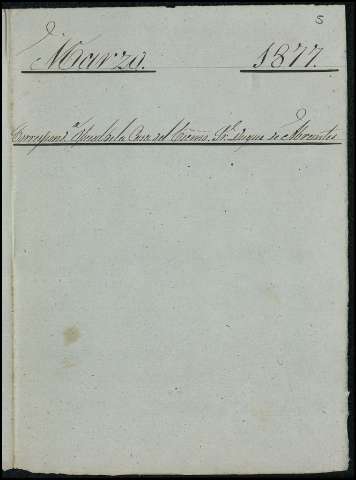 5
Marzo. 1877.
Correspond.ª Oficial de la Casa del Excmo. Sr. Duque de Abrantes